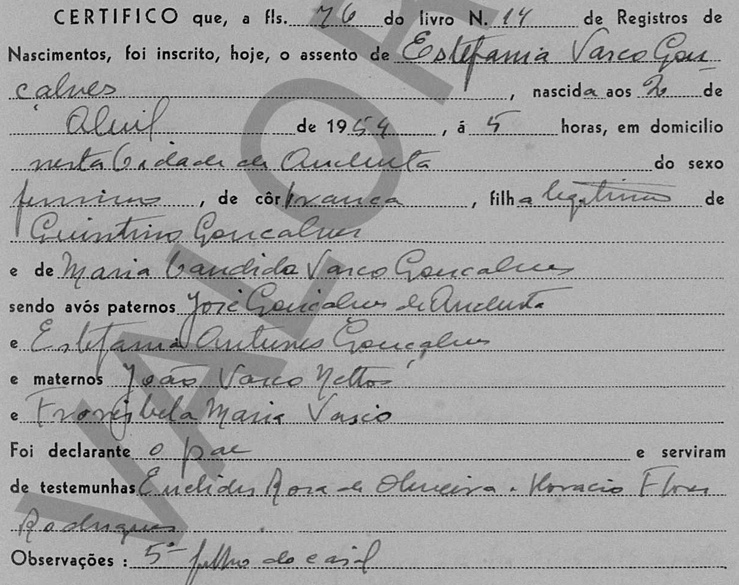 CERTIFICO que, a fls. 76 do livro N. 14 de Registros de
Nascimentos, foi inscrito, hoje, o assento de Estefania Vasco Gon
calves, nascida aos 2 de
Abril de 1954, á 5 horas, em domicilio
nesta Cidade de do sexo
feminino, de côr branca, filha legitima de
Quintino Goncalves
e de Maria Candida Vasco Goncalves
sendo avós paternos José Goncalves de
e Estefania Antunes Gonçalves
e maternos João Vasco Nettos
e Maria Vasco
Foi declarante o pae e serviram
de testemunhas Euclides Rosa de Oliveira. Horacio Flores
Rodrigues
Observações: 5º filho do casal
VALOR